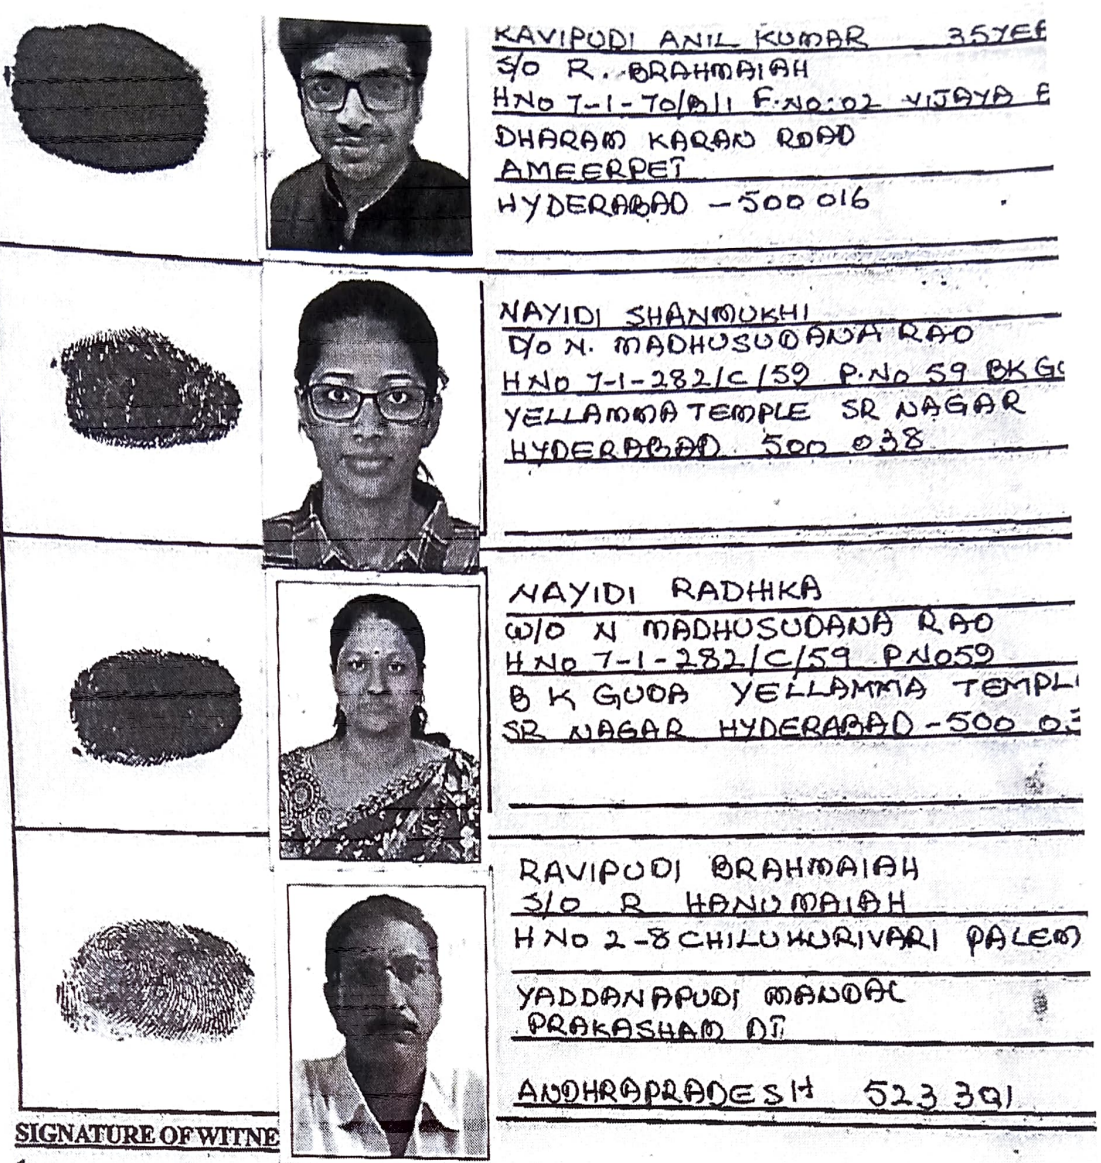 KAVIPUDI ANIL KUMAR 35YEE
S/O R. BRAHMAIAH
HNO 7-1-70/B/1 F.NO:02 VIJAYA
DHARAM KARAN ROAD
AMEERPET
HYDERABAD - 500 016
NAYIDI SHANMUKHI
D/O N. MADHUSUDANA RAO
H.NO 7-1-282/C/59 P.NO 59 BK GO
YELLAMMA TEMPLE SR NAGAR
HYDERABAD 500 038
NAYIDI RADHIKA
W/O N MADHUSUDANA RAO
H.NO 7-1-282/C/59 P.NO59
B K GUDA YELLAMMA TEMPL
SR NAGAR HYDERABAD - 500 03
RAVIPUDI BRAHMAIAH
S/O R HANUMAIAH
H NO 2-8 CHILUKURIVARI PALEM
YADDANAPUDI MANDAL
PRAKASHAM DT
ANDHRAPRADESH 523 301
SIGNATURE OF WITNE